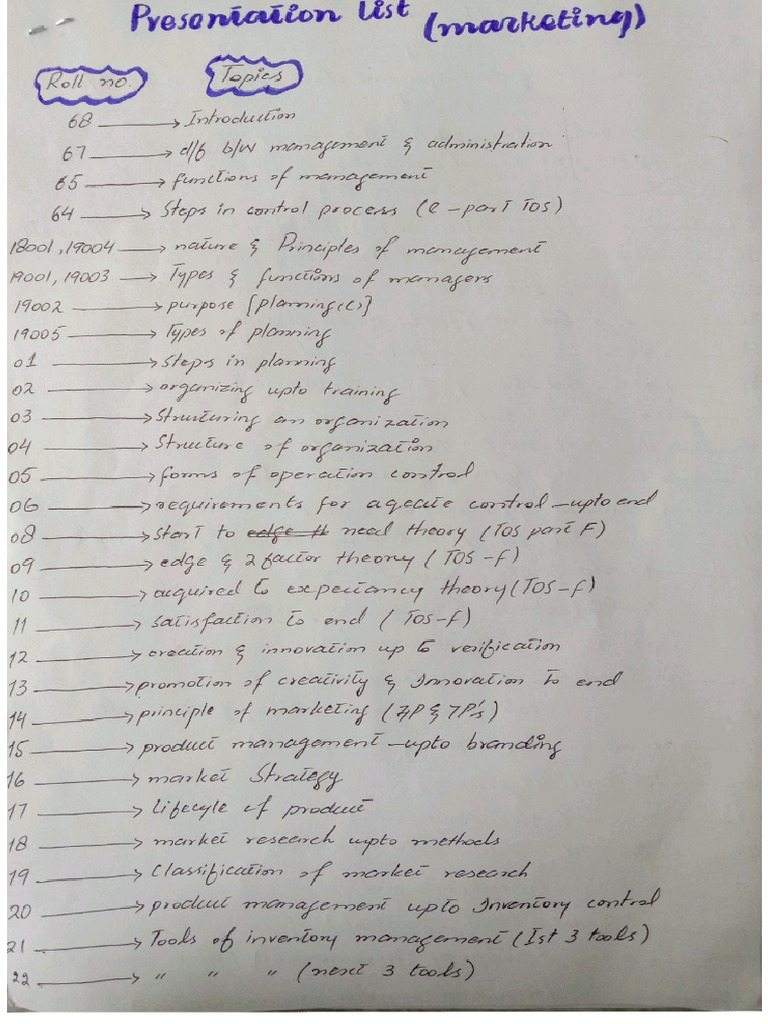 Presentation List (marketing)
Roll no. Topics
68 → Introduction
67 → d/f b/w management & administration
65 → functions of management
64 → Steps in control process (e-part TOS)
18001, 19004 → nature & Principles of management
19001, 19003 → Types & functions of managers
19002 → purpose {planning(c)}
19005 → Types of planning
01 → Steps in planning
02 → organizing upto training
03 → Structuring an organization
04 → Structure of organization
05 → forms of operation control
06 → requirements for aqeate control - upto end
08 → start to need theory (TOS part F)
09 → edge & 2 factor theory (TOS-f)
10 → acquired to expectancy theory (TOS-f)
11 → satisfaction to end (TOS-f)
12 → creation & innovation up to verification
13 → promotion of creativity & Innovation to end
14 → principle of marketing (4P & 7P's)
15 → product management - upto branding
16 → market Strategy
17 → lifecyle of product
18 → market research upto methods
19 → Classification of market research
20 → product management upto Inventory control
21 → Tools of inventory management (Ist 3 tools)
22 → " " " (next 3 tools)